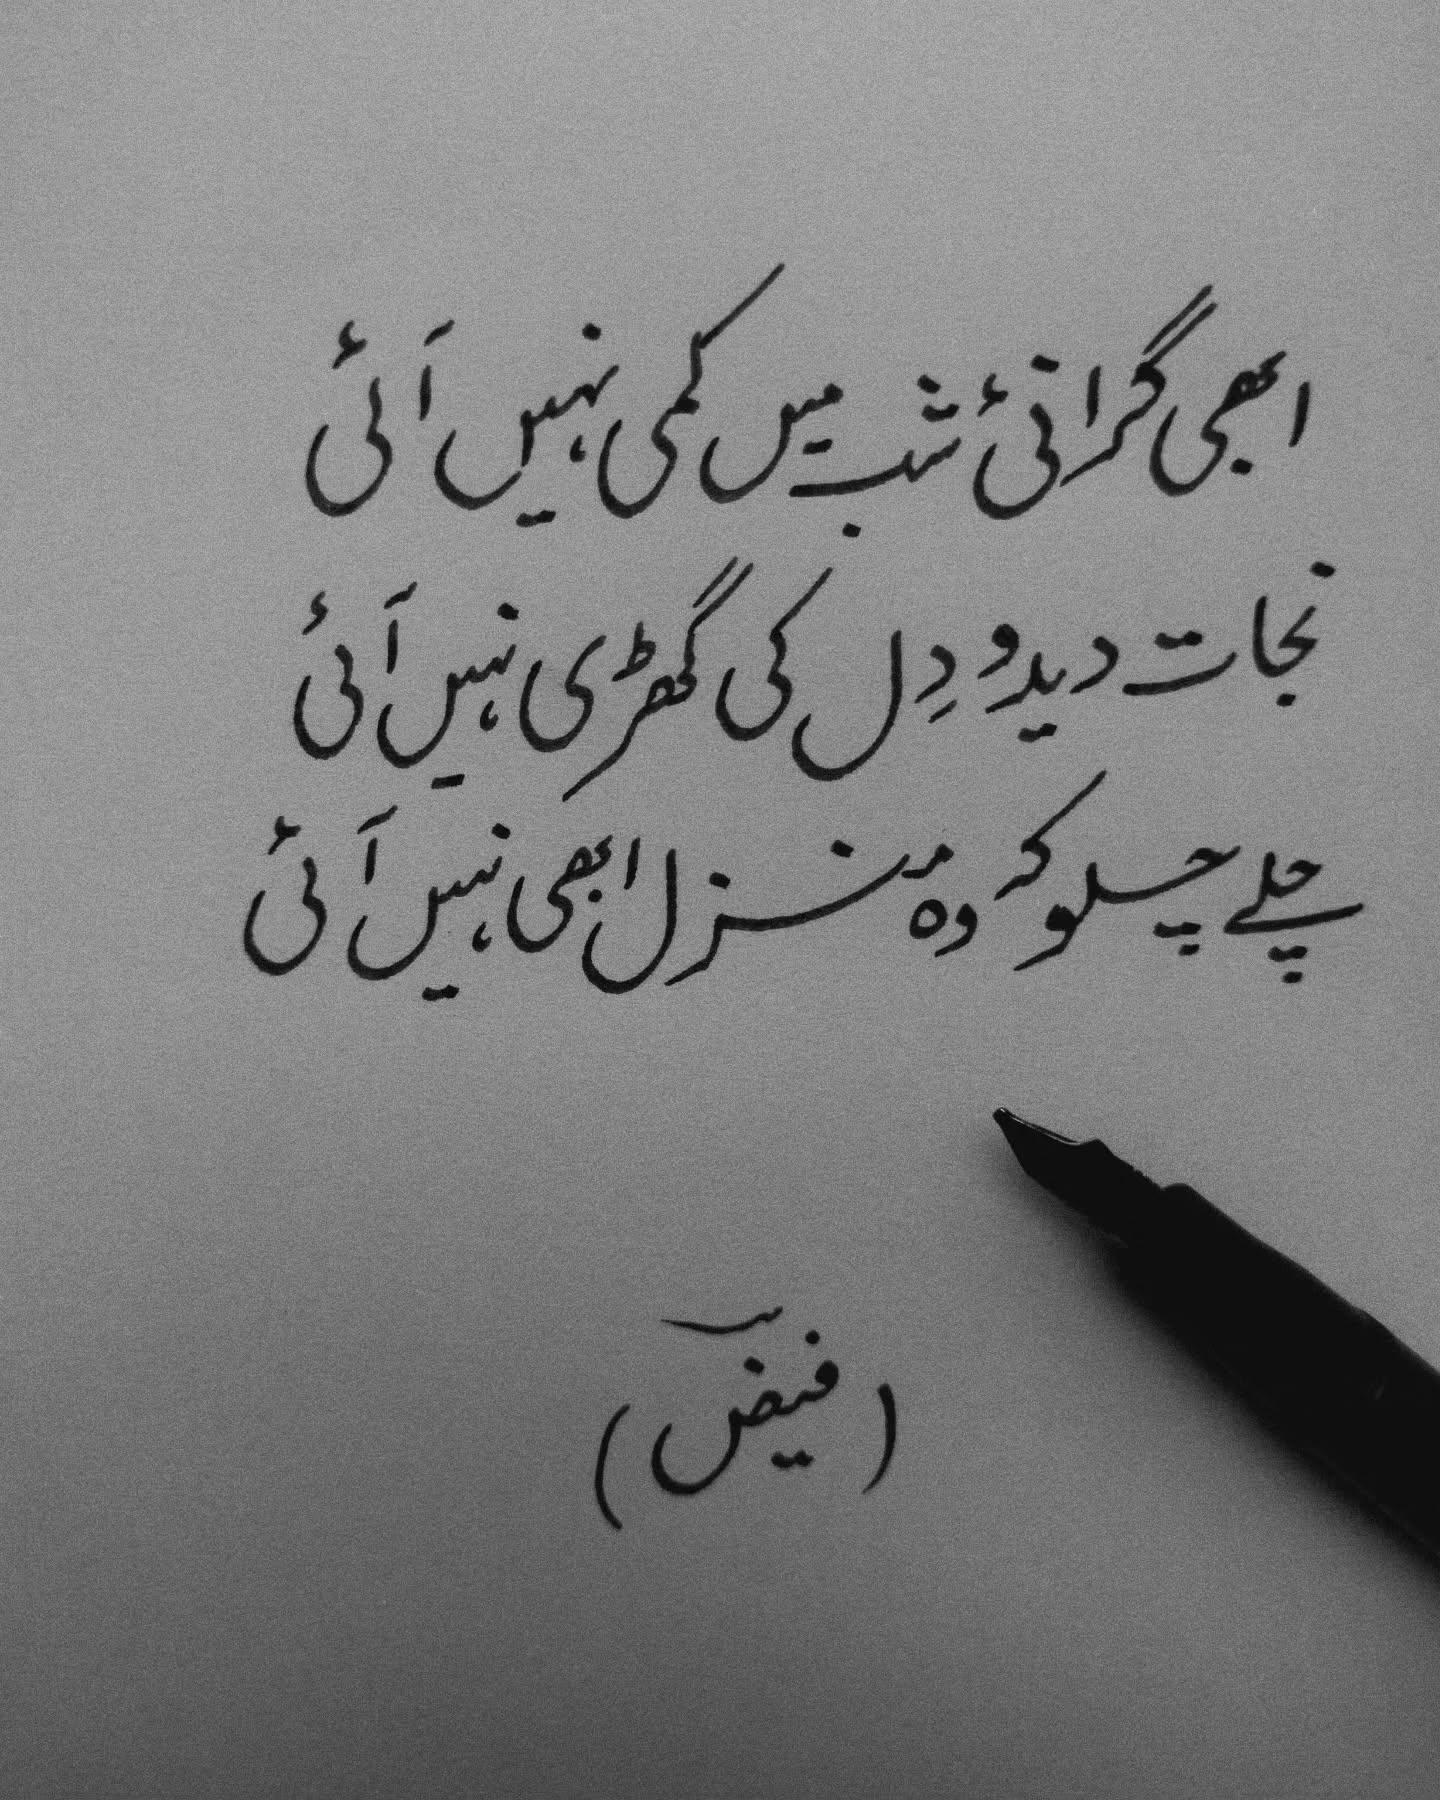 ابھی گرانیٔ شب میں کمی نہیں آئی
نجات دید و دِل کی گھڑی نہیں آئی
چلے چلو کہ وہ منزل ابھی نہیں آئی
(فیضؔ)